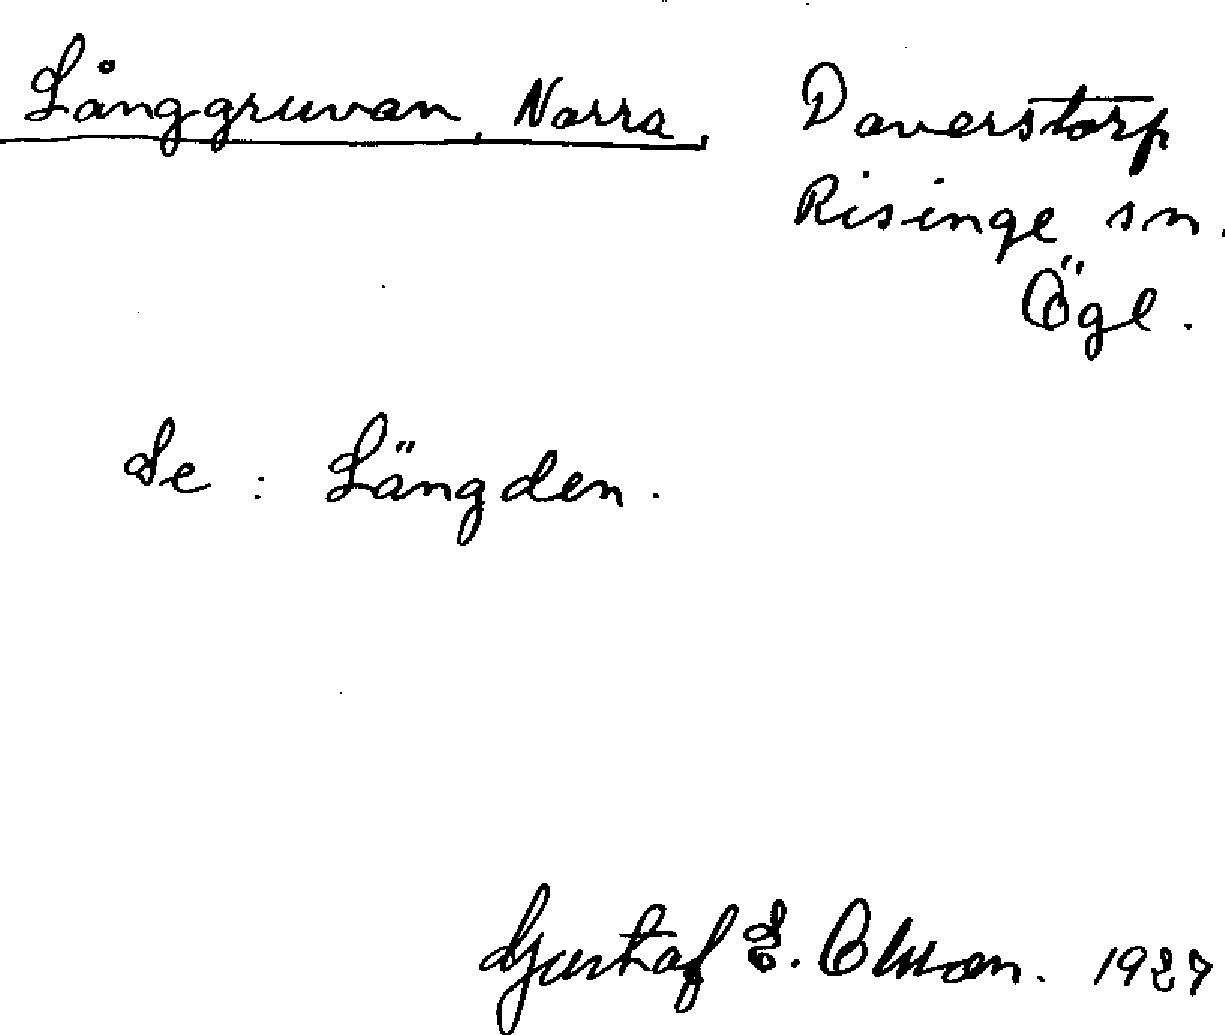 Långgruvan, Norra, Doverstorp
Risinge sn.
Ögl.
Se : Längden.
Gustaf E. Olsson. 1927